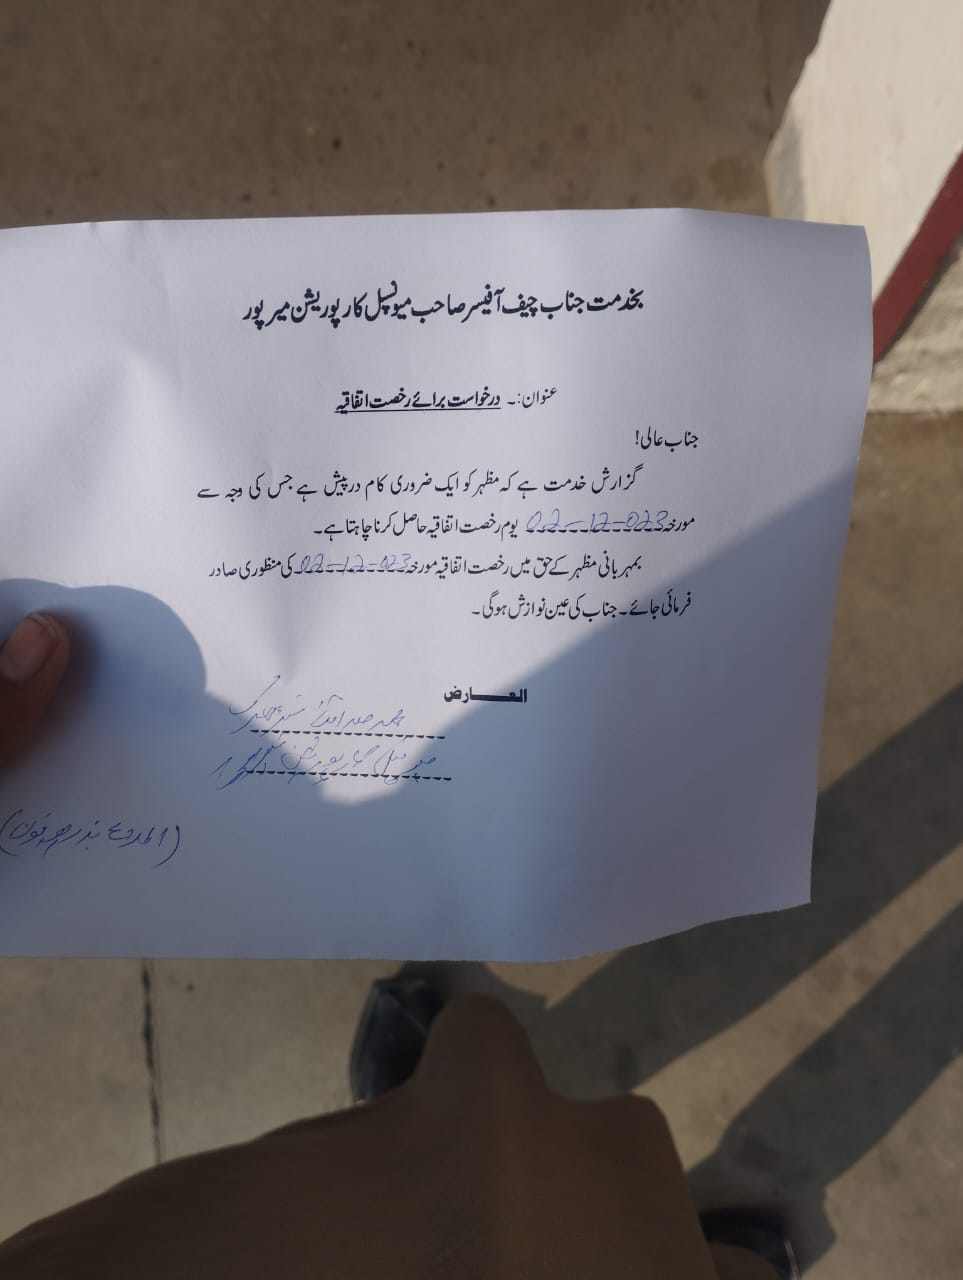 بخدمت جناب چیف آفیسر صاحب میونسپل کارپوریشن میرپور
عنوان:۔ درخواست برائے رخصت اتفاقیہ
جناب عالی!
گزارش خدمت ہے کہ مظہر کو ایک ضروری کام درپیش ہے جس کی وجہ سے
مورخہ 02-12-023 یوم رخصت اتفاقیہ حاصل کرنا چاہتا ہے۔
بمہربانی مظہر کے حق میں رخصت اتفاقیہ مورخہ 02-12-023 کی منظوری صادر
فرمائی جائے۔ جناب کی عین نوازش ہوگی۔
العارض
محمد
میونسپل کارپوریشن
(بذریعہ فون)